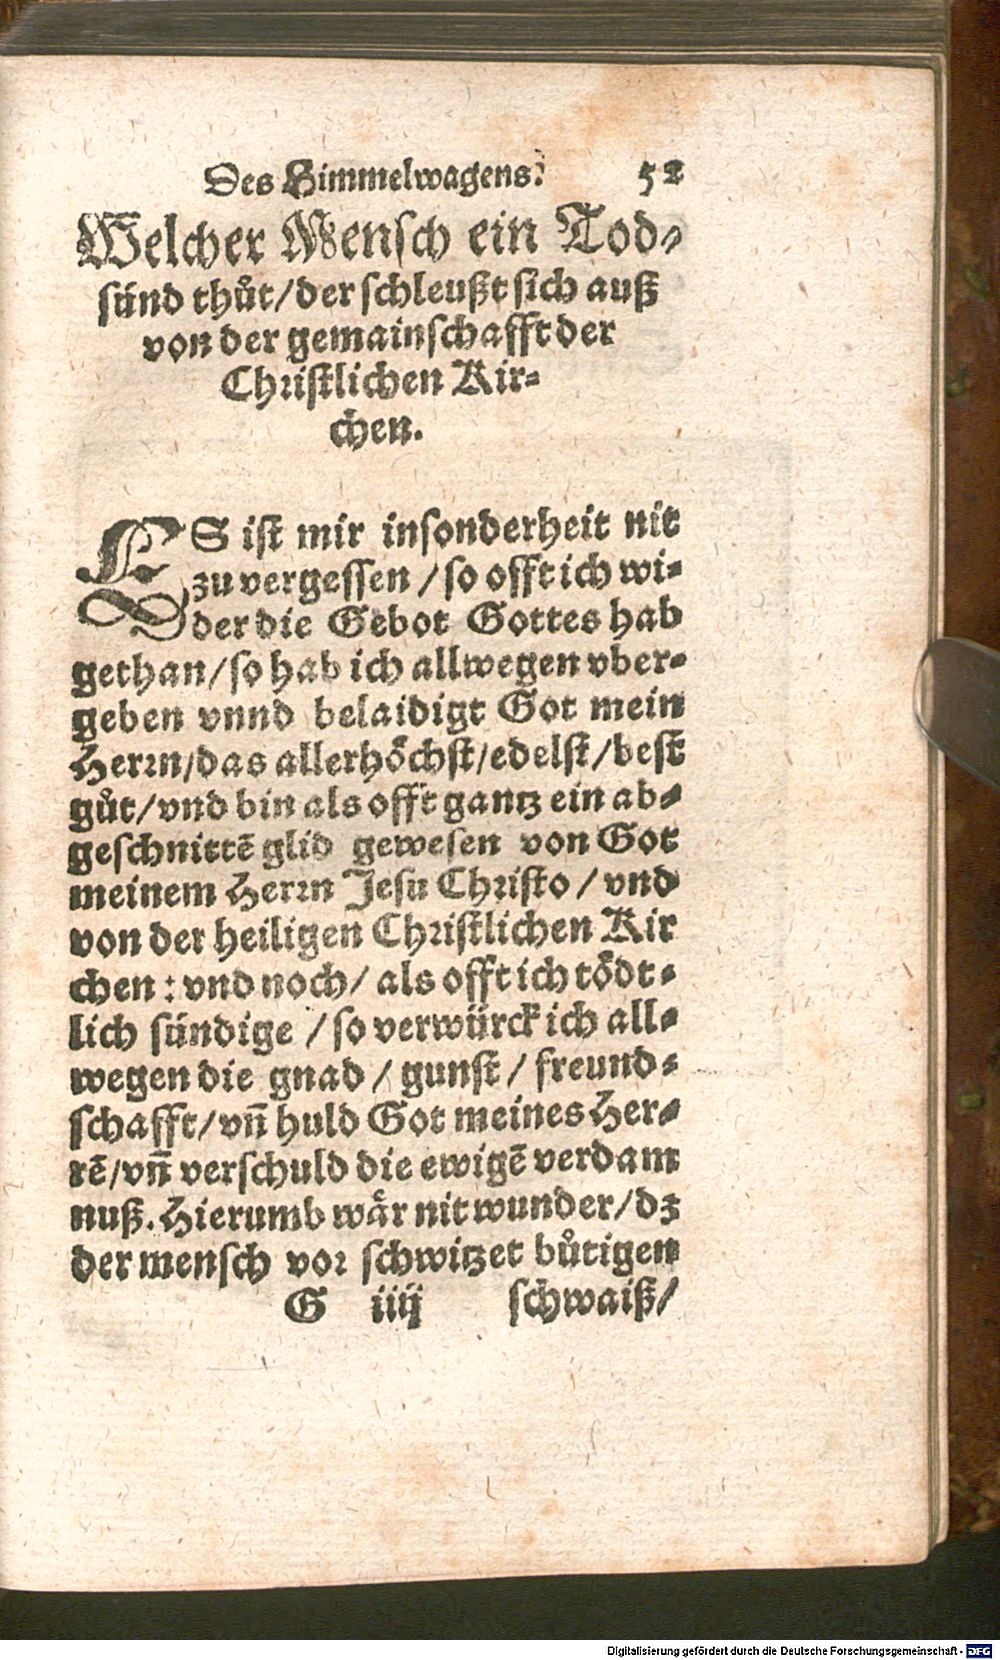 Des Himmelwagens. 52
Welcher Mensch ein Tod-
sünd thůt/der schleußt sich auß
von der gemainschafft der
Christlichen Kir-
chen.
ES ist mir insonderheit nit
zu vergessen / so offt ich wi-
der die Gebot Gottes hab
gethan/so hab ich allwegen vber-
geben vnnd belaidigt Got mein
Herrn/das allerhöchst/edelst/best
gůt/vnd bin als offt gantz ein ab-
geschnittẽ glid gewesen von Got
meinem Herrn Jesu Christo / vnd
von der heiligen Christlichen Kir
chen : vnd noch/ als offt ich tödt-
lich sündige / so verwürck ich all-
wegen die gnad / gunst / freund-
schafft/ vñ huld Got meines Her-
rẽ/vñ verschuld die ewigẽ verdam
nuß. Hierumb wär nit wunder/dz
der mensch vor schwitzet bůtigen
G iiij schwaiß/
Digitalisierung gefördert durch die Deutsche Forschungsgemeinschaft - DFG